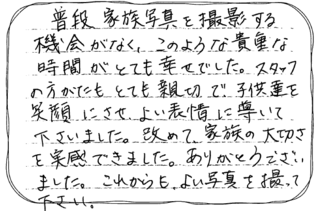 普段 家族写真を撮影する
機会がなく、このような貴重な
時間がとても幸せでした。スタッフ
の方がたもとても親切で子供達を
笑顔にさせ よい表情に導いて
下さいました。改めて、家族の大切さ
を実感できました。ありがとうござい
ました。これからも、よい写真を撮って
下さい。